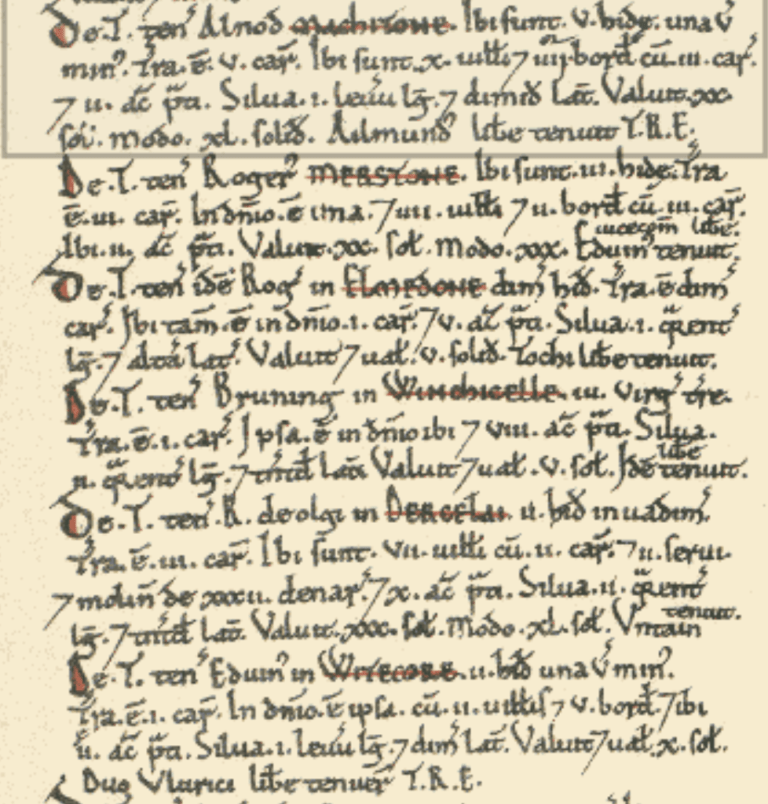 De.T. ten' Alnod MACHITONE. Ibi sunt. v. hidę. una v̄
min'. T̄ra.ē. v. car̄. Ibi sunt. x. uilli 7 iiij. bord̄ cū. iii. car̄.
7 ii. āc p̄ti. Silua. i. leuū lḡ. 7 dimid̄ lat̄. Valuit. xx.
sol'. modo. xl. solid̄. Ailmund' libe tenuit T.R.E.
De.T. ten' Roger' MERSTONE. Ibi sunt. iii. hidę. T̄ra
ē. iii. car̄. In dn̄io. ē una. 7 iiii. uilli 7 ii. bord̄ cū. iii. car̄.
Ibi. ii. āc p̄ti. Valuit. xx. sol. Modo. xxx. Eduin' tenuit.
De.T. ten' idē Rog' in ELMEDONE dim̄ hid̄. T̄ra.ē dim̄
car̄. Ibi tam̄. ē in dn̄io. i. car̄. 7 v. āc p̄ti. Silua. i. q̄rent'
lḡ. 7 alt̄a lat̄. Valuit 7 ual. v. solid̄. Tochi libe tenuit.
De.T. ten' Bruning in WINCHICELLE. iii. uirg' tr̄e.
T̄ra.ē. i. car̄. Ipsa.ē in dn̄io ibi 7 viii. āc p̄ti. Silua.
ii. q̄rent' lḡ. 7 tn̄td̄ lat̄. Valuit 7 ual. v. sol. Idē libe tenuit.
De.T. ten'. R. de olgi in BERCELAI. ii. hid̄ in uadim̄.
T̄ra.ē. iii. car̄. Ibi sunt. vii. uilli cū. ii. car̄. 7 ii. serui.
7 molin̄ de xxxii. denar̄. 7 x. āc p̄ti. Silua. ii. q̄rent'
lḡ. 7 tn̄td̄ lat̄. Valuit. xxx. sol. Modo. xl. sol. Vntain tenuit.
De.T. ten' Eduin' in WITECORE. ii. hid̄ una v̄ min'.
T̄ra.ē. i. car̄. In dn̄io.ē ipsa. cū. ii. uillis 7 v. bord̄. 7 ibi
ii. āc p̄ti. Silua. i. leuū lḡ. 7 dim̄ lat̄. Valuit 7 ual. x. sol.
Duo Vlurici libe tenuer' T.R.E.